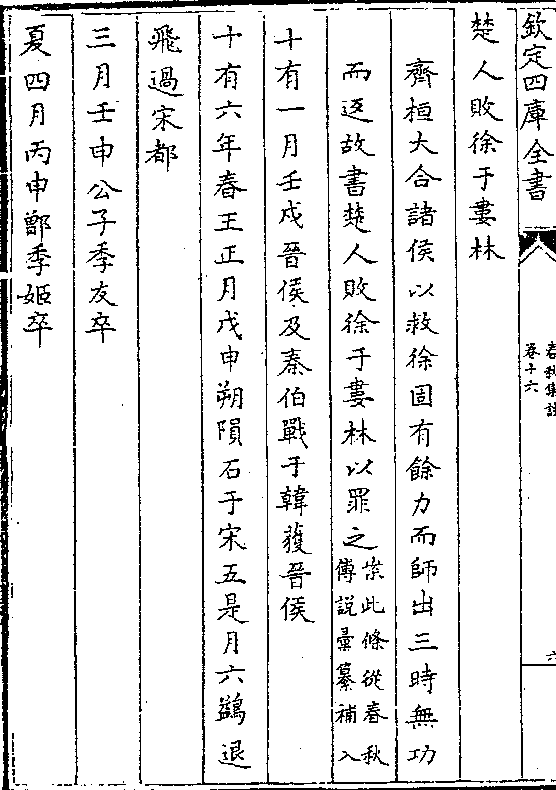 欽定四庫全書
春秋集註
卷十六
六
楚人敗徐于婁林
齊桓大合諸侯以救徐固有餘力而師出三時無功
而返故書楚人敗徐于婁林以罪之案此條從春秋
傳説彚纂補入
十有一月壬戌晉侯及秦伯戰于韓獲晉侯
十有六年春王正月戊申朔隕石于宋五是月六鷁退
飛過宋都
三月壬申公子季友卒
夏四月丙申鄫季姬卒